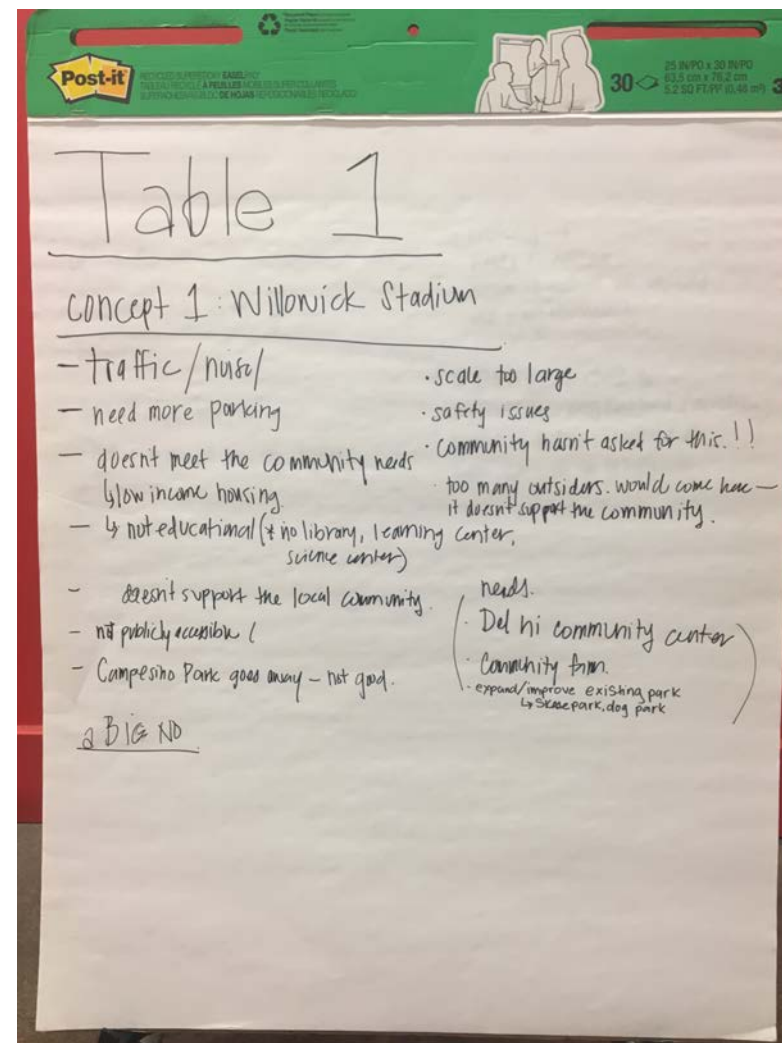 Post-it
30
25 IN/PO x 30 IN/PO
63,5 cm x 76,2 cm
5.2 SQ FT/PI² (0,48 m²)
Table 1
concept 1: Willowick Stadium
- traffic/noise/
- need more parking
- doesnt meet the community needs
↳ low income housing
- ↳ not educational (* no library, learning center,
science center)
- doesn't support the local community.
- not publicly accessible (
- Campesino Park goes away - not good.
a BIG NO
· scale too large
· safety issues
· community hasn't asked for this.!!
· too many outsiders. would come here -
it doesn't support the community.
needs.
· Del hi community center
· Community farm.
· expand/improve existing park
↳ Skatepark, dog park